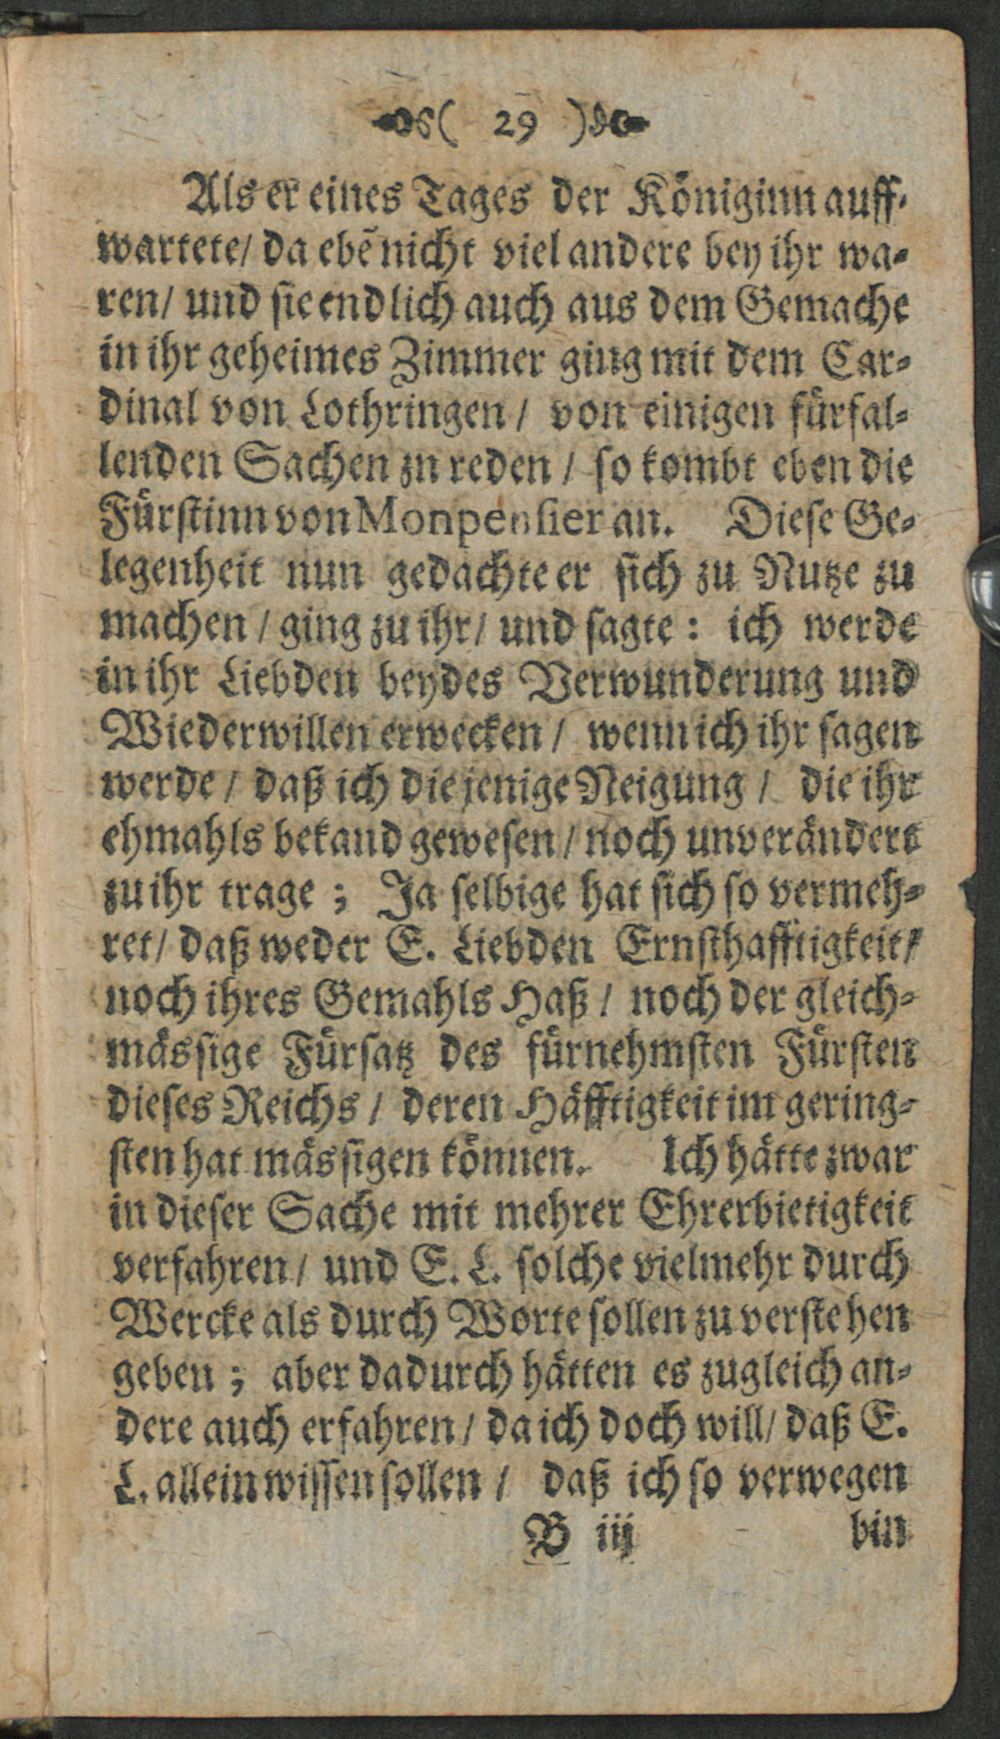 ( 29 )
Als er eines Tages der Königinn auff-
wartete/ da ebẽ nicht viel andere bey ihr wa-
ren/ und sie endlich auch aus dem Gemache
in ihr geheimes Zimmer ging mit dem Car-
dinal von Lothringen / von einigen fürfal-
lenden Sachen zu reden / so kombt eben die
Fürstinn von Monpensier an. Diese Ge-
legenheit nun gedachte er sich zu Nutze zu
machen / ging zu ihr/ und sagte : ich werde
in ihr Liebden beydes Verwunderung und
Wiederwillen erwecken / wenn ich ihr sagen
werde / daß ich die jenige Neigung / die ihr
ehmahls bekand gewesen / noch unverändert
zu ihr trage ; Ja selbige hat sich so vermeh-
ret/ daß weder E. Liebden Ernsthafftigkeit/
noch ihres Gemahls Haß / noch der gleich-
mässige Fürsatz des fürnehmsten Fürsten
dieses Reichs / deren Häfftigkeit im gering-
sten hat mässigen können. Ich hätte zwar
in dieser Sache mit mehrer Ehrerbietigkeit
verfahren / und E. L. solche vielmehr durch
Wercke als durch Worte sollen zu verstehen
geben ; aber dadurch hätten es zugleich an-
dere auch erfahren / da ich doch will/ daß E.
L. allein wissen sollen / daß ich so verwegen
B iij bin